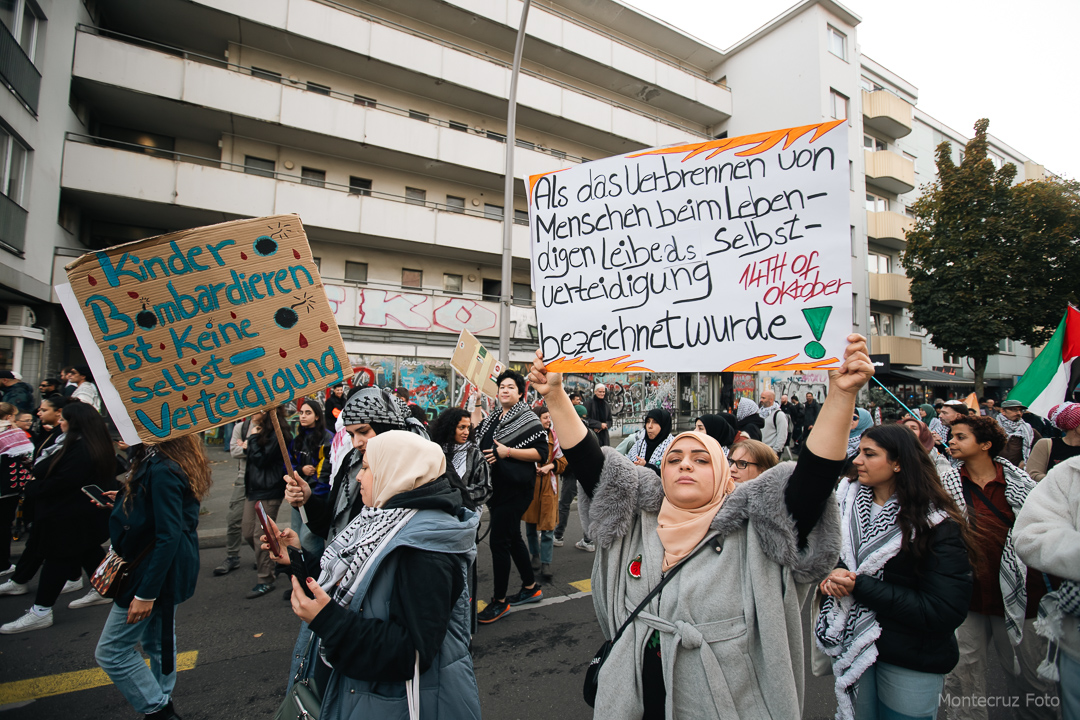 Kinder
Bombardieren
ist Keine
Selbst-
Verteidigung
Als das Verbrennen von
Menschen beim Leben-
digen Leibe als Selbst-
verteidigung
14TH of
Oktober
bezeichnet wurde!
Montecruz Foto